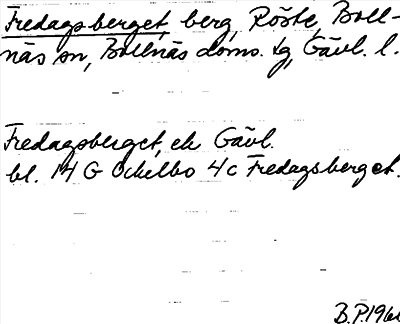 Fredagsberget, berg, Röste, Boll-
näs sn, Bollnäs doms. tg, Gävl. l.
Fredagsberget, ek Gävl.
bl. 14 G Ockelbo 4c Fredagsberget.
B.P.196